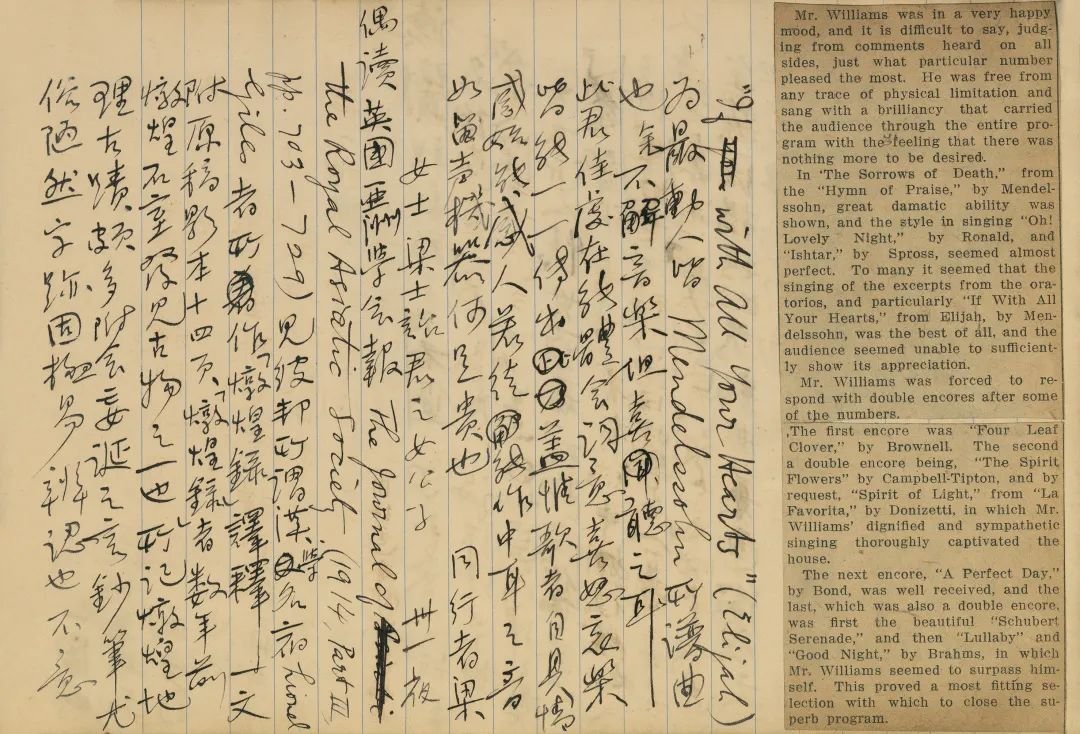 Mr. Williams was in a very happy
mood, and it is difficult to say, judg-
ing from comments heard on all
sides, just what particular number
pleased the most. He was free from
any trace of physical limitation and
sang with a brilliancy that carried
the audience through the entire pro-
gram with the feeling that there was
nothing more to be desired.
In 'The Sorrows of Death," from
the "Hymn of Praise," by Mendel-
ssohn, great damatic ability was
shown, and the style in singing "Oh!
Lovely Night," by Ronald, and
"Ishtar," by Spross, seemed almost
perfect. To many it seemed that the
singing of the excerpts from the ora-
torios, and particularly "If With All
Your Hearts," from Elijah, by Men-
delssohn, was the best of all, and the
audience seemed unable to sufficient-
ly show its appreciation.
Mr. Williams was forced to re-
spond with double encores after some
of the numbers.
The first encore was "Four Leaf
Clover," by Brownell. The second
a double encore being, "The Spirit
Flowers" by Campbell-Tipton, and by
request, "Spirit of Light," from "La
Favorita," by Donizetti, in which Mr.
Williams' dignified and sympathetic
singing thoroughly captivated the
house.
The next encore, "A Perfect Day,"
by Bond, was well received, and the
last, which was also a double encore,
was first the beautiful "Schubert
Serenade," and then "Lullaby" and
"Good Night," by Brahms, in which
Mr. Williams seemed to surpass him-
self. This proved a most fitting se-
lection with which to close the su-
perb program.
"If with All Your Hearts" (Elijah)
為最動人皆 Mendelssohn 所譜曲
也余不解音樂但喜聽之耳
此君佳處在能體會詞意喜怒哀樂
皆能一一傳出蓋惟歌者自具情
感始能感人若徒能作中耳之音
如留声機器何足貴也 同行者梁
女士梁士詒君之女公子 卅一夜
偶讀英國亞洲學会報 The Journal of
the Royal Asiatic Society (1914, Part III,
pp. 703–729) 見彼邦所謂漢學名宿 Lionel
Giles 者所作「燉煌錄」譯釋一文
附原稿影本十四頁「燉煌錄」者数年前
燉煌石室發見古物之一也所記燉煌地
理古蹟頗多附会妄誕之言鈔筆尤
俗陋然字跡固極易辨認也不意